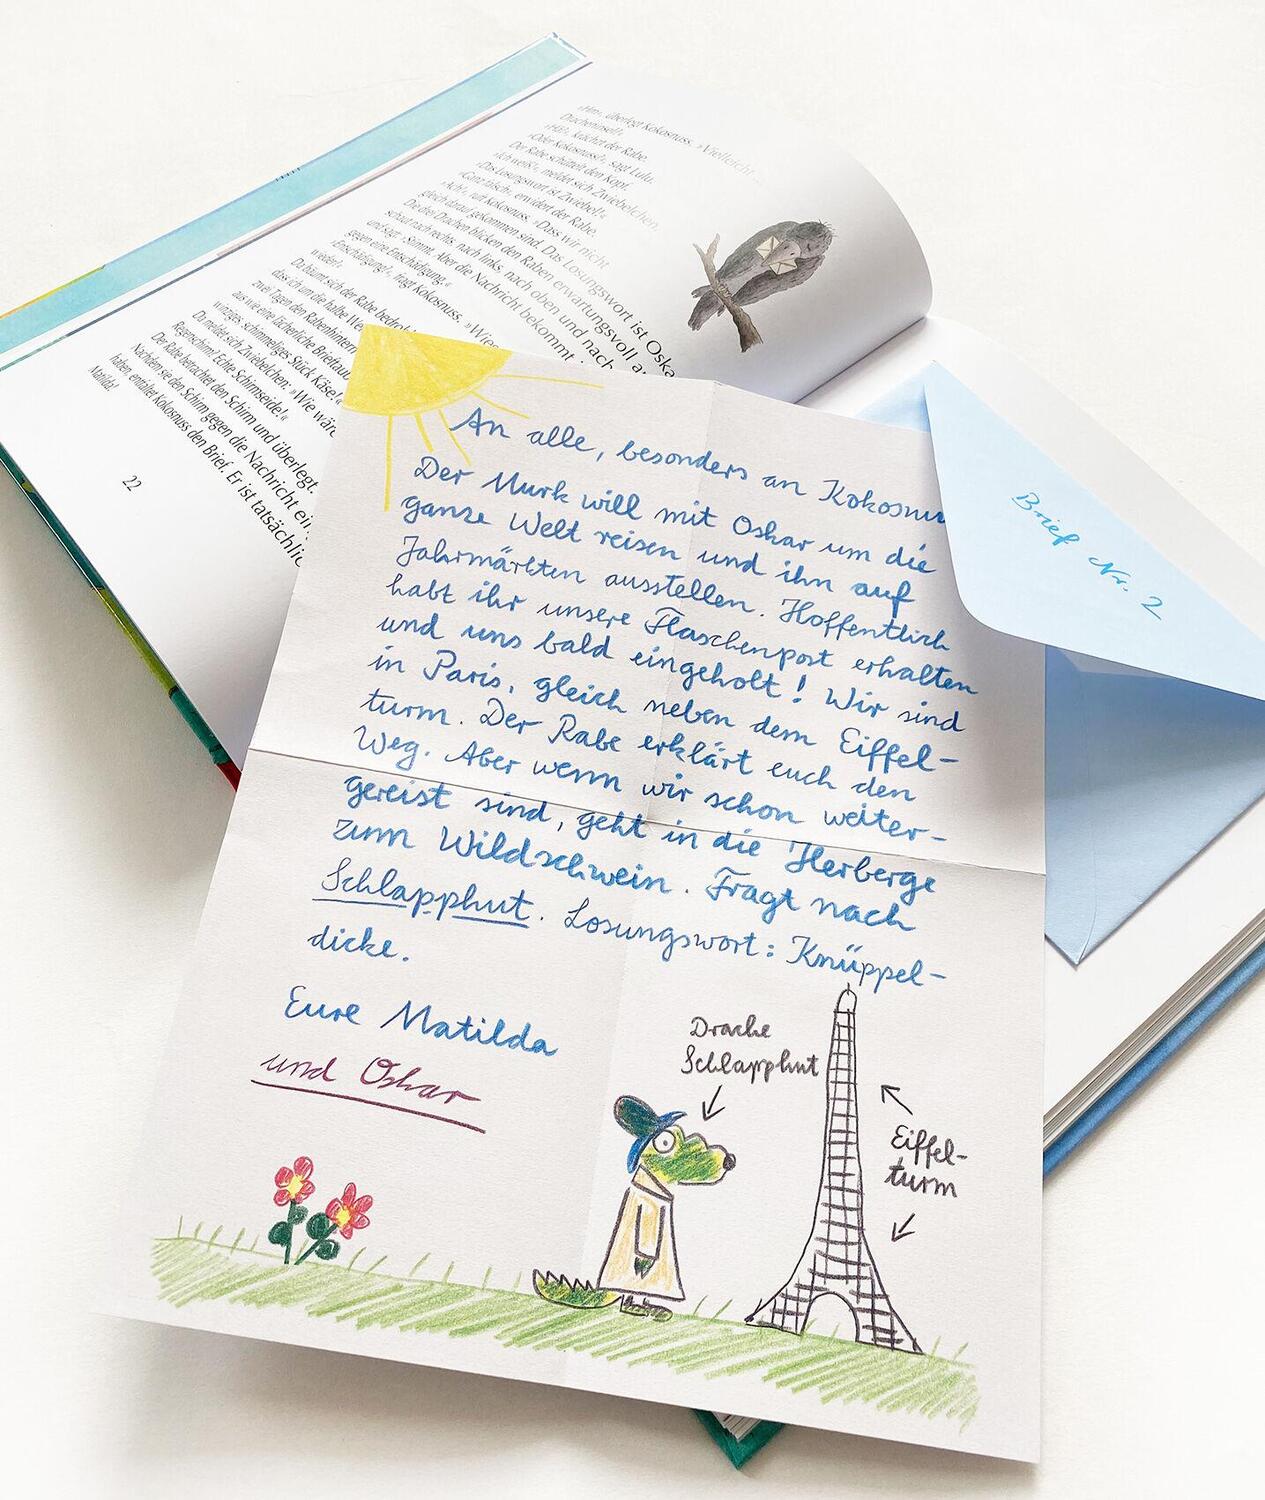 »Hm«, überlegt Kokosnuss. »Vielleicht ...
Dracheninsel?«
»Hä?«, krächzt der Rabe.
»Oder Kokosnuss?«, sagt Lulu.
Der Rabe schüttelt den Kopf.
»Ich weiß!«, meldet sich Zwiebelchen.
»Das Losungswort ist Zwiebel!«
»Ganz falsch«, erwidert der Rabe.
»Ach!«, ruft Kokosnuss. »Dass wir nicht
gleich darauf gekommen sind. Das Losungswort ist Oska
Die drei Drachen blicken den Raben erwartungsvoll a
schaut nach rechts, nach links, nach oben und nach
und sagt: »Stimmt. Aber die Nachricht bekommt i
gegen eine Entschädigung.«
»Entschädigung?«, fragt Kokosnuss. »Wies
wieder?
Da bäumt sich der Rabe bedroh
dass ich um die halbe We
zwei Tagen den Rabenhintern
aus wie eine lächerliche Brieftaub
winziges, schimmeliges Stück Käse!«
Da meldet sich Zwiebelchen: »Wie wäre
Regenschirm? Echte Schirmseide!«
Der Rabe betrachtet den Schirm und überlegt.
Nachdem sie den Schirm gegen die Nachricht ein
haben, entfaltet Kokosnuss den Brief. Er ist tatsächlic
Matilda!
22
An alle, besonders an Kokosnu
Der Murk will mit Oskar um die
ganze Welt reisen und ihn auf
Jahrmärkten ausstellen. Hoffentlich
habt ihr unsere Flaschenpost erhalten
und uns bald eingeholt! Wir sind
in Paris, gleich neben dem Eiffel-
turm. Der Rabe erklärt euch den
Weg. Aber wenn wir schon weiter-
gereist sind, geht in die Herberge
zum Wildschwein. Fragt nach
Schlapphut. Losungswort: Knüppel-
dicke.
Eure Matilda
und Oskar
Drache
Schlapphut
Eiffel-
turm
Brief Nr. 2